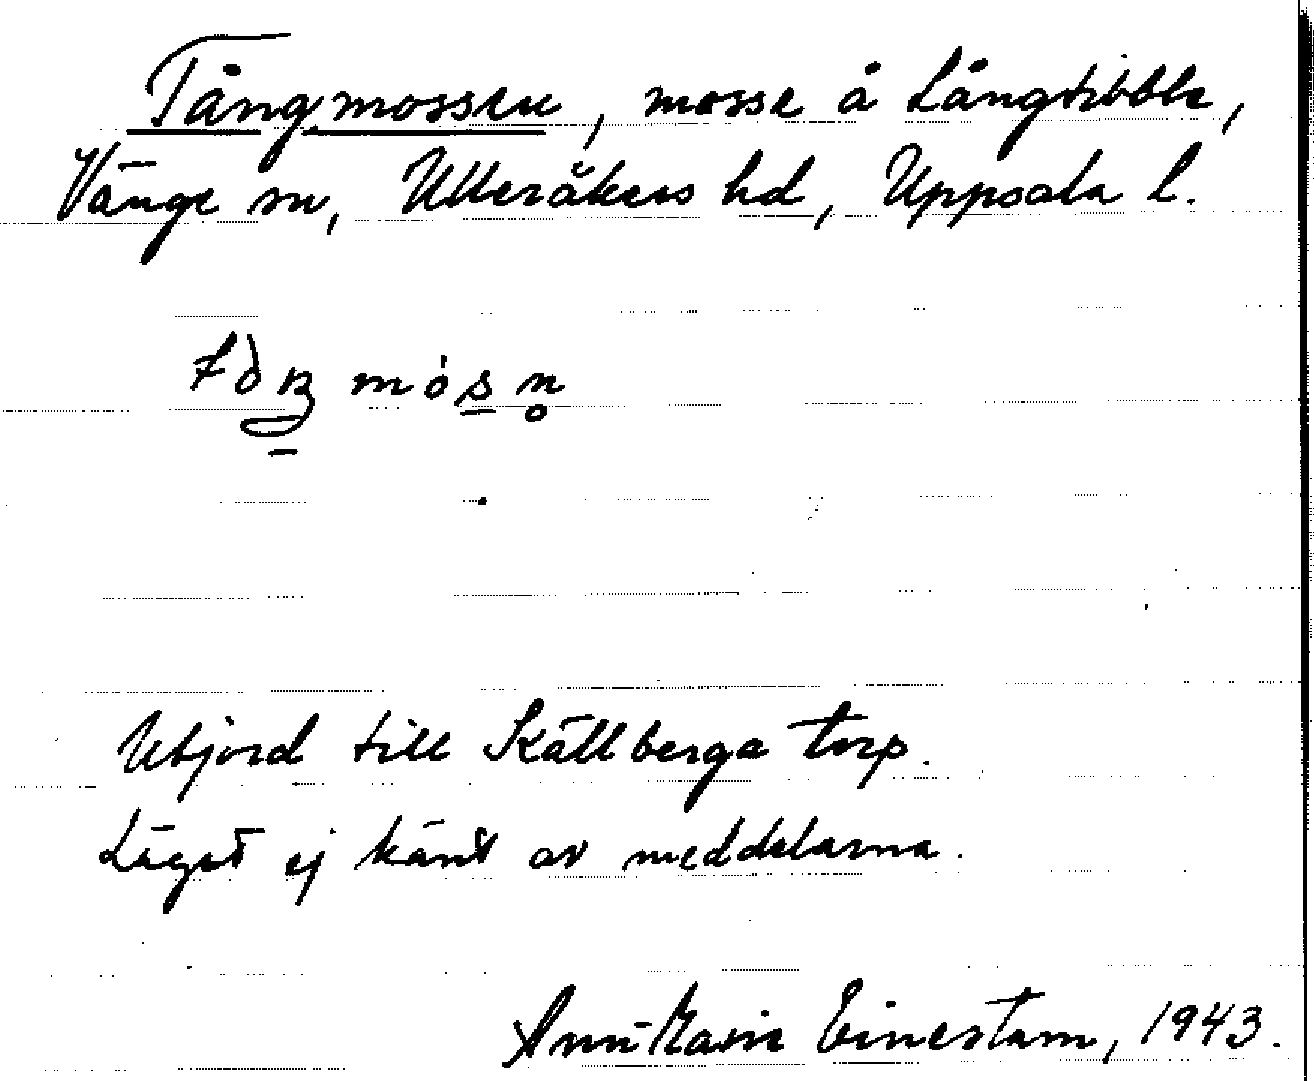 Tångmossen, mosse å Långtibble,
Vänge sn, Ulleråkers hd, Uppsala l.
Utjord till Källberga torp.
Läget ej känt av meddelarna.
Ann-Marie Einestam, 1943.